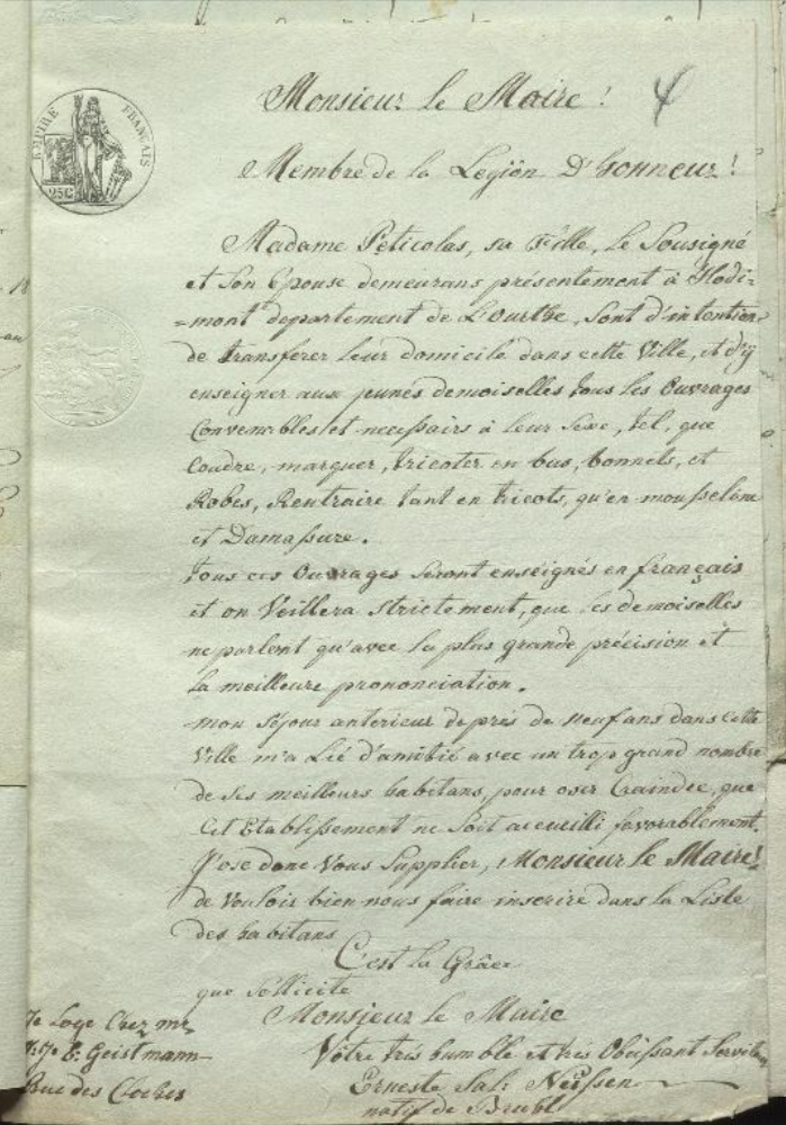 Monsieur le Maire!
Membre de la Legion D'honneur!
EMPIRE FRANÇAIS
25C
Madame Peticolas, sa Fille, le Sousigné
et Son Epouse demeurans présentement à Hodi=
=mont departement de L'Ourthe, Sont d'intention
de transferer leur domicile dans cette Ville, et d'ÿ
enseigner aux jeunes demoiselles tous les Ouvrages
Convenables et necessairs à leur Sexe, tel, que
Coudre, marquer, tricoter en bas, bonnets, et
Robes, Rentraire tant en tricots, qu'en mousseline
et Damassure.
tous ces Ouvrages Seront enseignés en français
et on Veillera Strictement, que les demoiselles
ne parlent qu'avec la plus grande précision et
la meilleure prononciation.
mon Séjour anterieur de prés de neuf ans dans cette
Ville m'a Lié d'amitié avec un trop grand nombre
de Ses meilleurs habitans, pour oser Craindre, que
Cet Etablissement ne Soit accueilli favorablement.
J'ose donc Vous Supplier, Monsieur le Maire!
de Vouloir bien nous faire inscrire dans la Liste
des habitans
C'est la Grâce
que Sollicite
Monsieur le Maire
Vôtre trés humble et trés Obéissant Serviteur
Erneste Sal: Neissen
natif de Bruhl
Je Loge Chez mr
Geistmann
Rue des Cloches